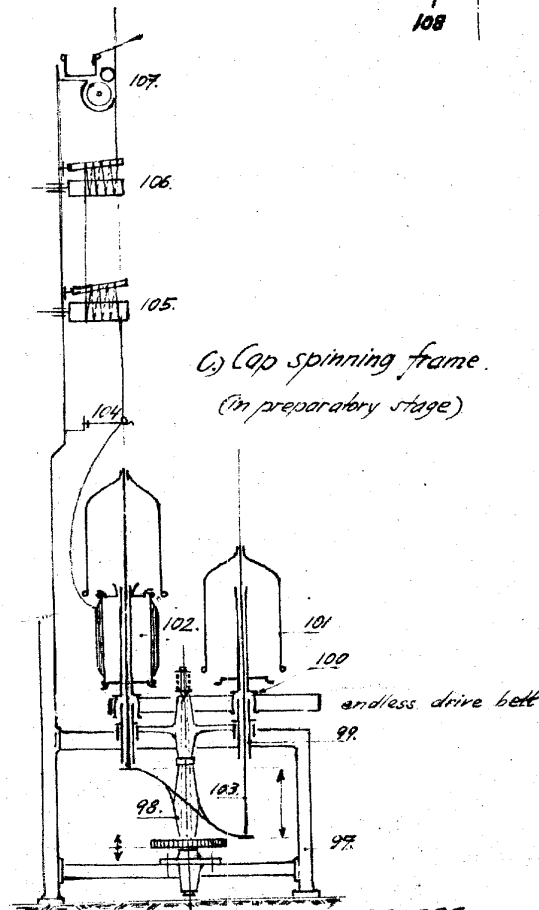 108
107.
106.
105.
C.) Cap spinning frame.
(in preparatory stage)
104
102.
101
100
endless drive belt
99.
103.
98.
97.